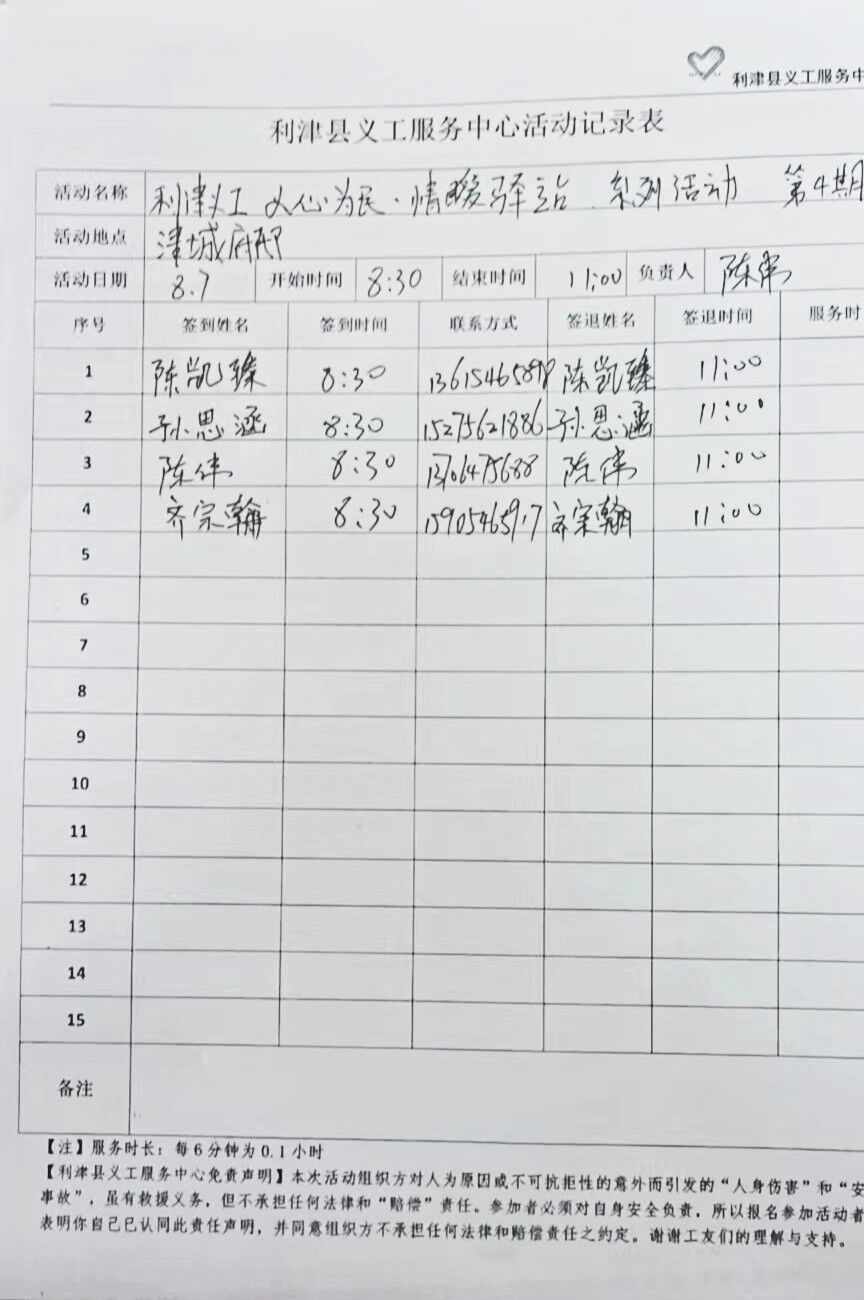 利津县义工服务中
利津县义工服务中心活动记录表
活动名称 利津义工 义心为民·情暖驿站 系列活动 第4期
活动地点 津城府邸
活动日期 8.7 开始时间 8:30 结束时间 11:00 负责人 陈伟
序号 签到姓名 签到时间 联系方式 签退姓名 签退时间 服务时
1 陈凯臻 8:30 陈凯臻 11:00
2 孙思涵 8:30 15275621886 孙思涵 11:00
3 陈伟 8:30 13706475688 陈伟 11:00
4 齐宗翰 8:30 齐宗翰 11:00
5
6
7
8
9
10
11
12
13
14
15
备注
【注】服务时长：每6分钟为0.1小时
【利津县义工服务中心免责声明】本次活动组织方对人为原因或不可抗拒性的意外而引发的“人身伤害”和“安
事故”，虽有救援义务，但不承担任何法律和“赔偿”责任。参加者必须对自身安全负责，所以报名参加活动者
表明你自己已认同此责任声明，并同意组织方不承担任何法律和赔偿责任之约定。谢谢工友们的理解与支持。